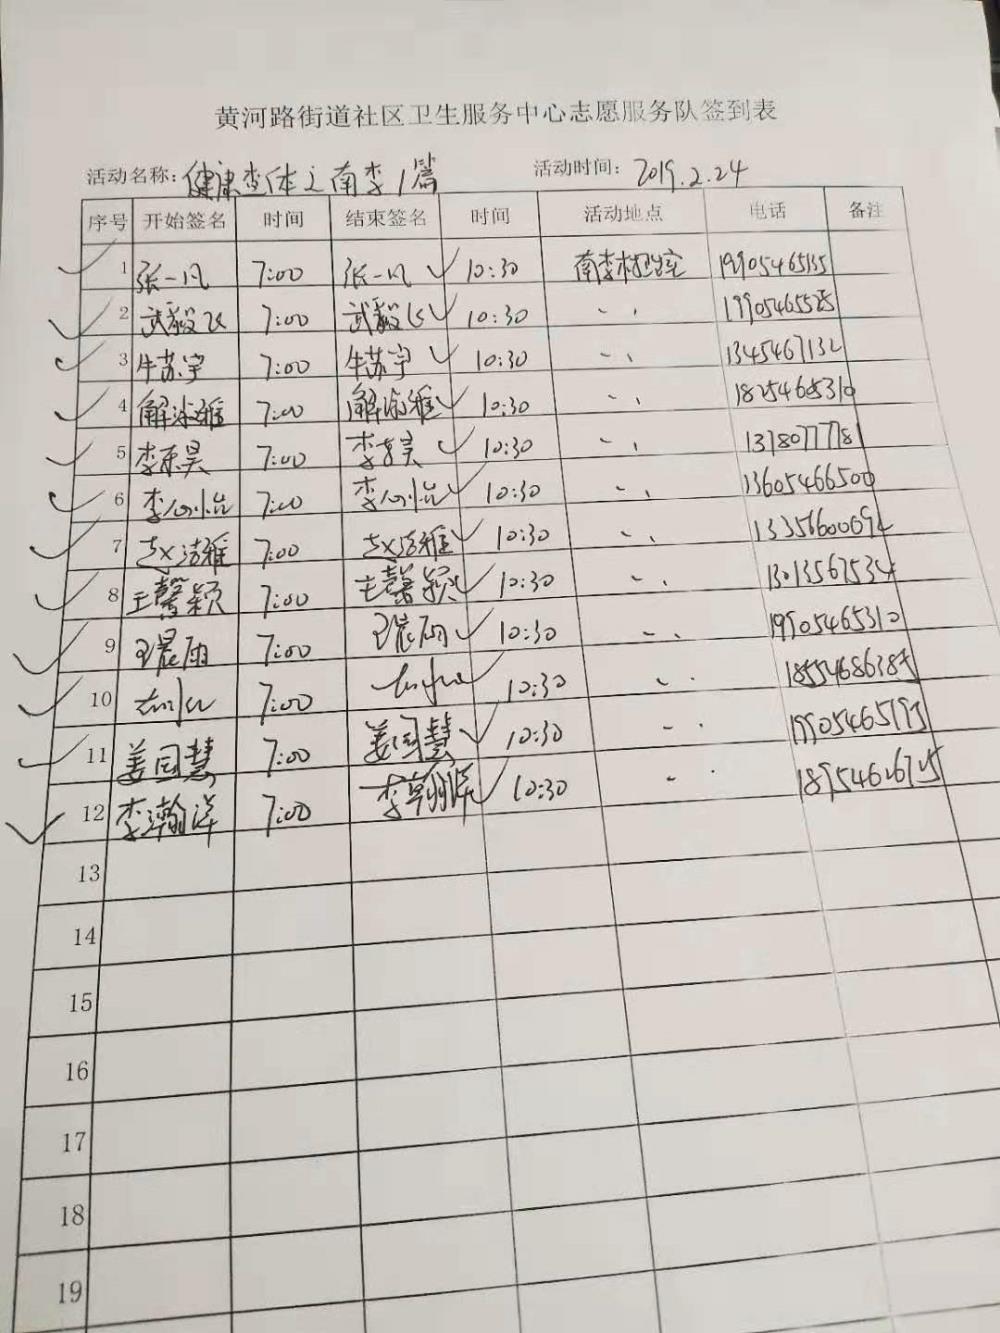 黄河路街道社区卫生服务中心志愿服务队签到表
活动名称：健康查体之南李1篇 活动时间：2019.2.24
序号 开始签名 时间 结束签名 时间 活动地点 电话 备注
1 张一凡 7:00 张一凡 10:30 南李村 19905465135
2 武毅飞 7:00 武毅飞 10:30 〃 19905465525
3 牛苏宇 7:00 牛苏宇 10:30 〃
4 7:00 10:30 〃 18254665310
5 李东昊 7:00 李东昊 10:30 〃
6 7:00 10:30 〃 13605466500
7 赵洁雅 7:00 赵洁雅 10:30 〃
8 王馨颖 7:00 王馨颖 10:30 〃 13013567534
9 王晨雨 7:00 王晨雨 10:30 〃 19905465310
10 7:00 10:30 〃
11 姜国慧 7:00 姜国慧 10:30 〃
12 李瀚洋 7:00 李瀚洋 10:30 〃
13
14
15
16
17
18
19